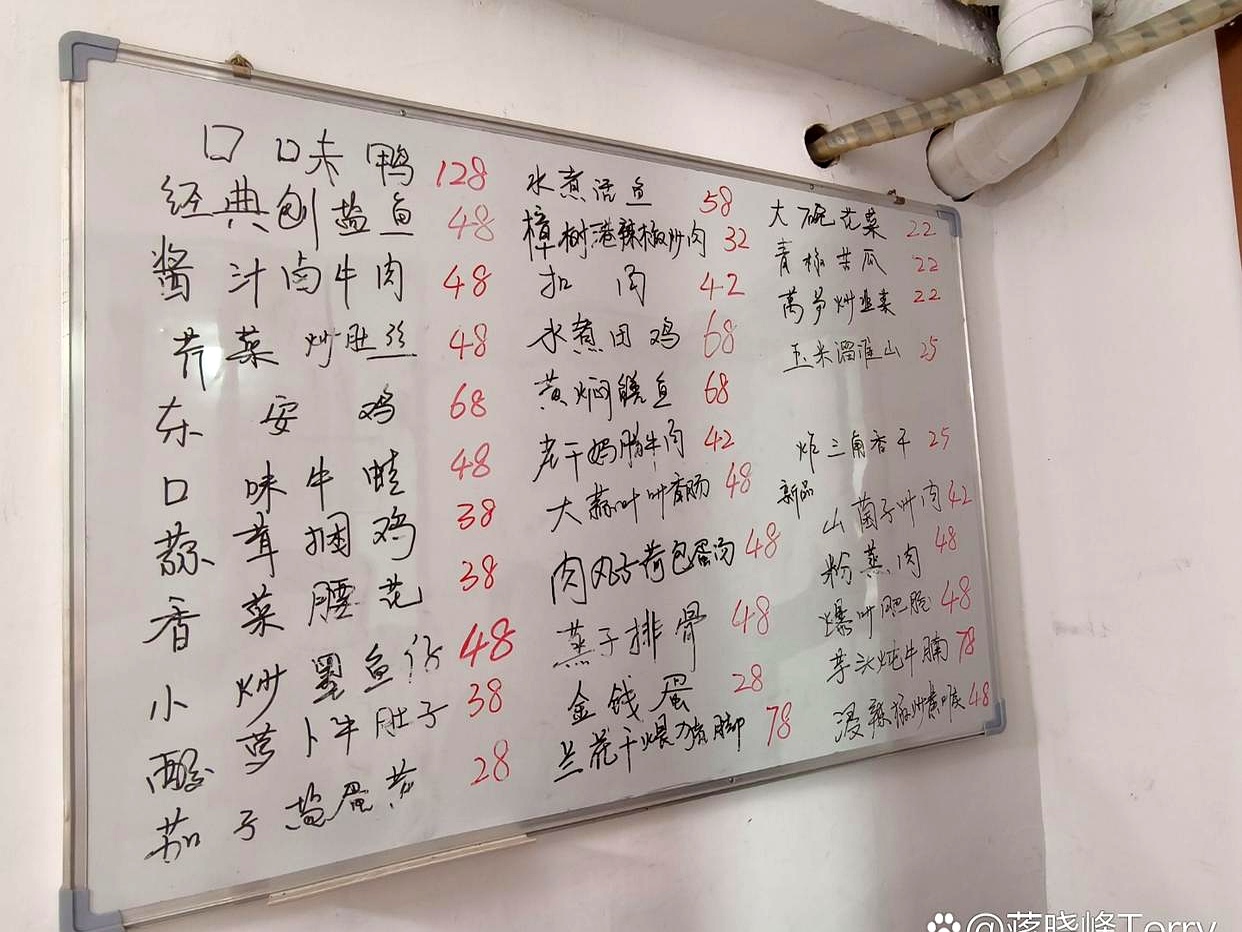 口口味鸭 128
经典刨盐鱼 48
酱汁卤牛肉 48
芹菜炒肚丝 48
东安鸡 68
口味牛蛙 48
蒜茸捆鸡 38
香菜腰花 38
小炒墨鱼仔 48
酸萝卜牛肚子 38
茄子盐蛋黄 28
水煮活鱼 58
樟树港辣椒炒肉 32
扣肉 42
水煮田鸡 68
黄焖鳝鱼 68
老干妈腊牛肉 42
大蒜叶炒香肠 48
肉丸子荷包蛋汤 48
蒸子排骨 48
金钱蛋 28
兰花干煨猪脚 78
大碗花菜 22
青椒苦瓜 22
莴笋炒韭菜 22
玉米溜淮山 25
炸三角香干 25
新品
山菌子叶肉 42
粉蒸肉 48
爆叶肥肠 48
芋头炖牛腩 78
浸辣椒炒黄喉 48
@蒋晓峰Terry